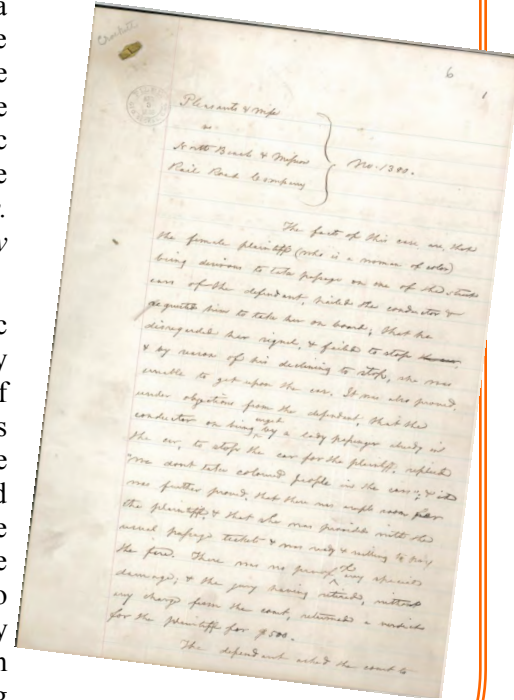 a
e
e
e
c
e
.
y
c
y
f
s
e
d
e
e
o
y
n
g
Crockett
6
1
Pleasants & wife
vs
North Beach & Mission
Rail Road Company
No. 1380.
The facts of this case are, that
the female plaintiff (who is a woman of color)
being desirous to take passage on one of the street
cars of the defendant, hailed the conductor &
requested him to take her on board; that he
disregarded her signal, & failed to stop
& by reason of his declining to stop, she was
unable to get upon the car. It was also proved,
under objections from the defendant, that the
conductor on being urged by a lady passenger already in
the car, to stop the car for the plaintiff, replied
"we dont take coloured people in the cars"; &
was further proved, that there was ample room for
the plaintiff, & that she was provided with the
usual passage ticket & was ready & willing to pay
the fare. There was no proof of any special
damage; & the jury having retired, without
any charge from the court, returned a verdict
for the plaintiff for $500.
The defendant asked the court to